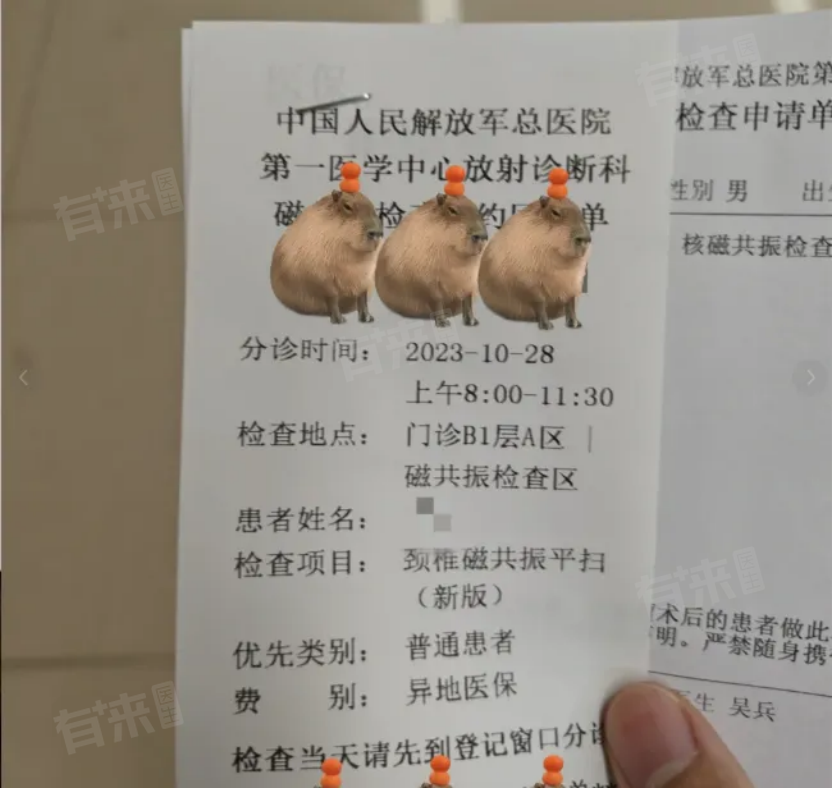 中国人民解放军总医院
第一医学中心放射诊断科
磁 检 约 单
分诊时间： 2023-10-28
上午8:00-11:30
检查地点： 门诊B1层A区
磁共振检查区
患者姓名：
检查项目： 颈椎磁共振平扫
（新版）
优先类别： 普通患者
费 别： 异地医保
检查当天请先到登记窗口分诊
放军总医院第
检查申请单
性别 男 出生
核磁共振检查
术后的患者做此
明。严禁随身携
医生 吴兵
有来医生
有来医生
有来医生
有来医生
有来医生